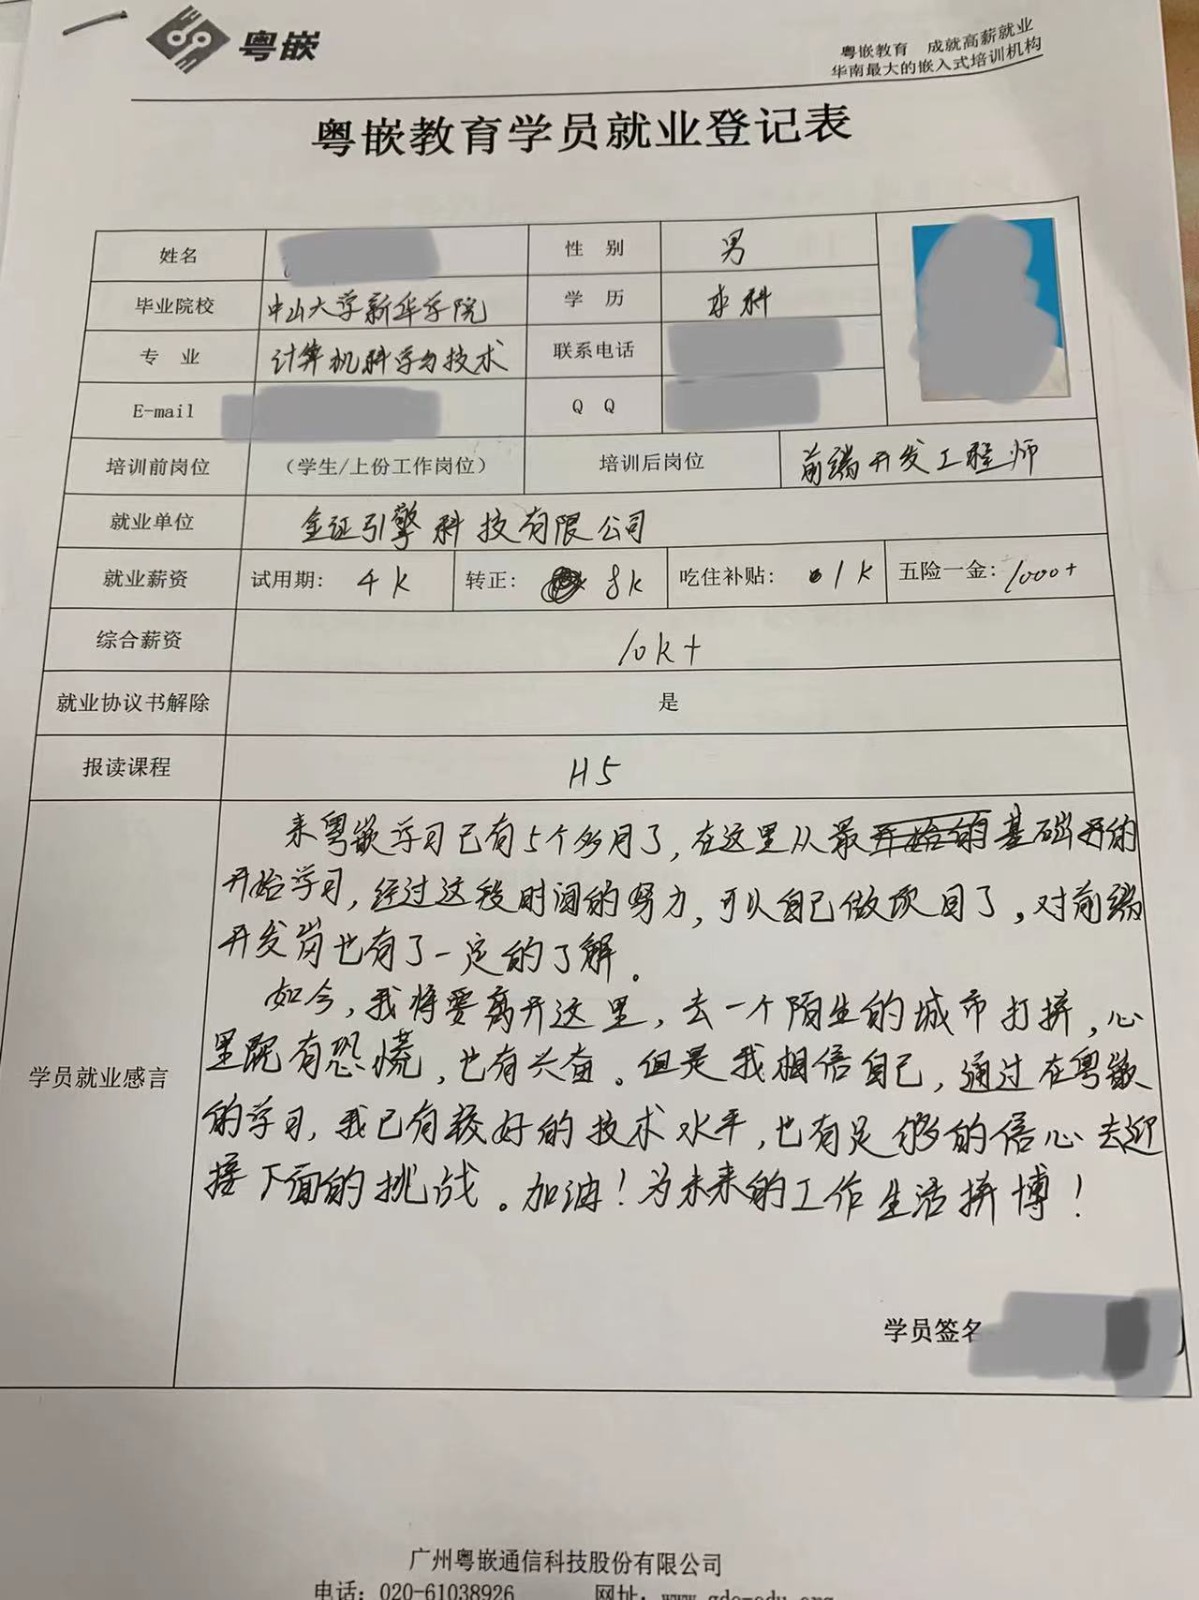 粤嵌
粤嵌教育 成就高薪就业
华南最大的嵌入式培训机构
粤嵌教育学员就业登记表
姓名 性 别 男
毕业院校 中山大学新华学院 学 历 本科
专 业 计算机科学与技术 联系电话
E-mail Q Q
培训前岗位 （学生/上份工作岗位） 培训后岗位 前端开发工程师
就业单位 金证引擎科技有限公司
就业薪资 试用期： 4K 转正： 8K 吃住补贴： 1K 五险一金： 1000+
综合薪资 10K+
就业协议书解除 是
报读课程 H5
来粤嵌学习已有5个多月了，在这里从最开始的基础的
开始学习，经过这段时间的努力，可以自己做项目了。对前端
开发岗也有了一定的了解。
如今，我将要离开这里，去一个陌生的城市打拼，心
里既有恐慌，也有兴奋。但是我相信自己，通过在粤嵌
学员就业感言
的学习，我已有较好的技术水平，也有足够的信心去迎
接下面的挑战。加油！为未来的工作生活拼博！
学员签名
广州粤嵌通信科技股份有限公司
电话：020-61038926 网址：www.gdc-edu.org